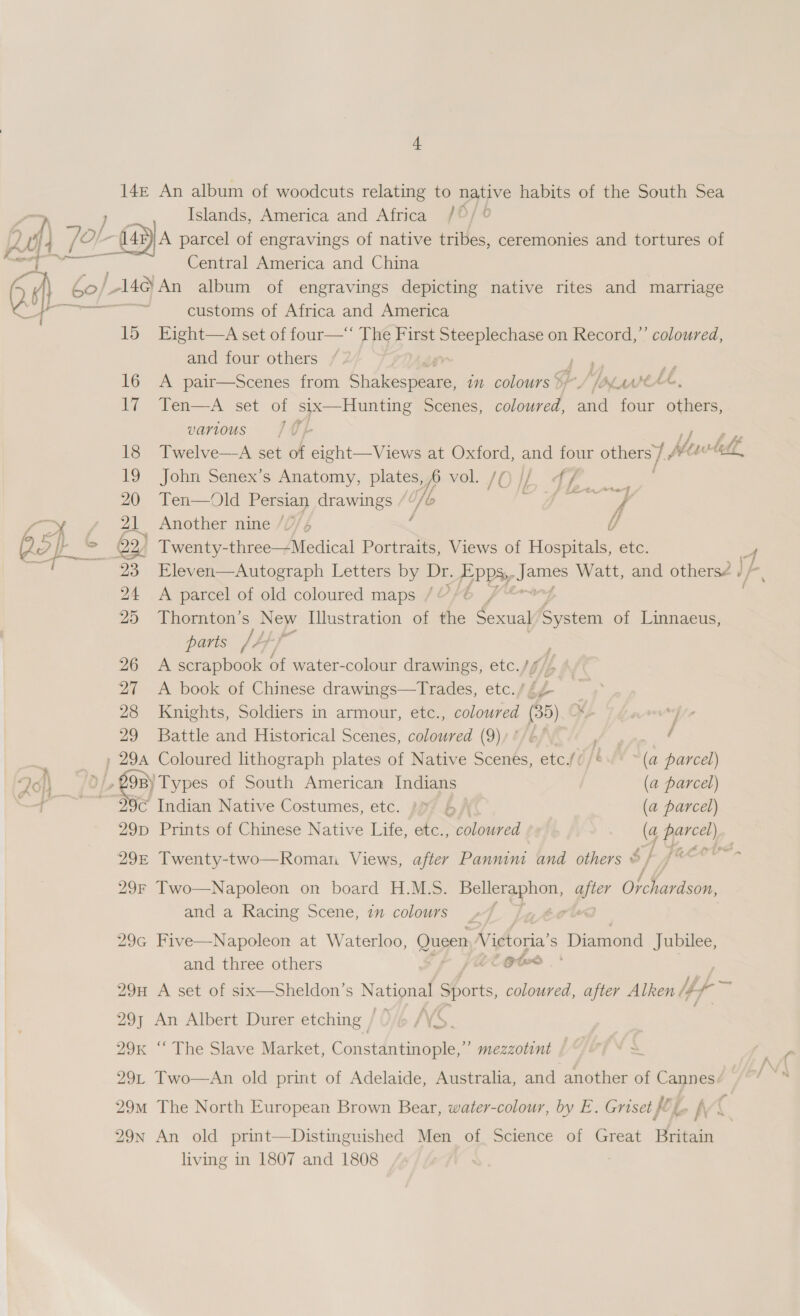 4
14E An album of woodcuts relating to native habits of the South Sea
Islands, America and Africa
70/- 14F A parcel of engravings of native tribes, ceremonies and tortures of
Central America and China
60/- 14G An album of engravings depicting native rites and marriage
customs of Africa and America
15 Eight—A set of four—“ The First Steeplechase on Record,” coloured,
and four others
16 A pair—Scenes from Shakespeare, in colours
17 Ten—A set of six—Hunting Scenes, coloured, and four others,
various
18 Twelve—A set of eight—Views at Oxford, and four others
19 John Senex’s Anatomy, plates, 6 vol.
20 Ten—Old Persian drawings
21 Another nine
22 Twenty-three—Medical Portraits, Views of Hospitals, etc.
23 Eleven—Autograph Letters by Dr. Epps, James Watt, and others
24 A parcel of old coloured maps
25 Thornton’s New Illustration of the Sexual System of Linnaeus,
parts
26 A scrapbook of water-colour drawings, etc.
27 A book of Chinese drawings—Trades, etc.
28 Knights, Soldiers in armour, etc., coloured (35)
29 Battle and Historical Scenes, coloured (9)
29A Coloured lithograph plates of Native Scenes, etc. (a parcel)
29B Types of South American Indians (a parcel)
29C Indian Native Costumes, etc. (a parcel)
29D Prints of Chinese Native Life, etc., coloured (a parcel)
29E Twenty-two—Roman Views, after Pannini and others
29F Two—Napoleon on board H.M.S. Belleraphon, after Orchardson,
and a Racing Scene, in colours
29G Five—Napoleon at Waterloo, Queen Victoria’s Diamond Jubilee,
and three others
29H A set of six—Sheldon’s National Sports, coloured, after Alken
29J An Albert Durer etching
29K “ The Slave Market, Constantinople,” mezzotint
29L Two—An old print of Adelaide, Australia, and another of Cannes
29M The North European Brown Bear, water-colour, by E. Griset
29N An old print—Distinguished Men of Science of Great Britain
living in 1807 and 1808